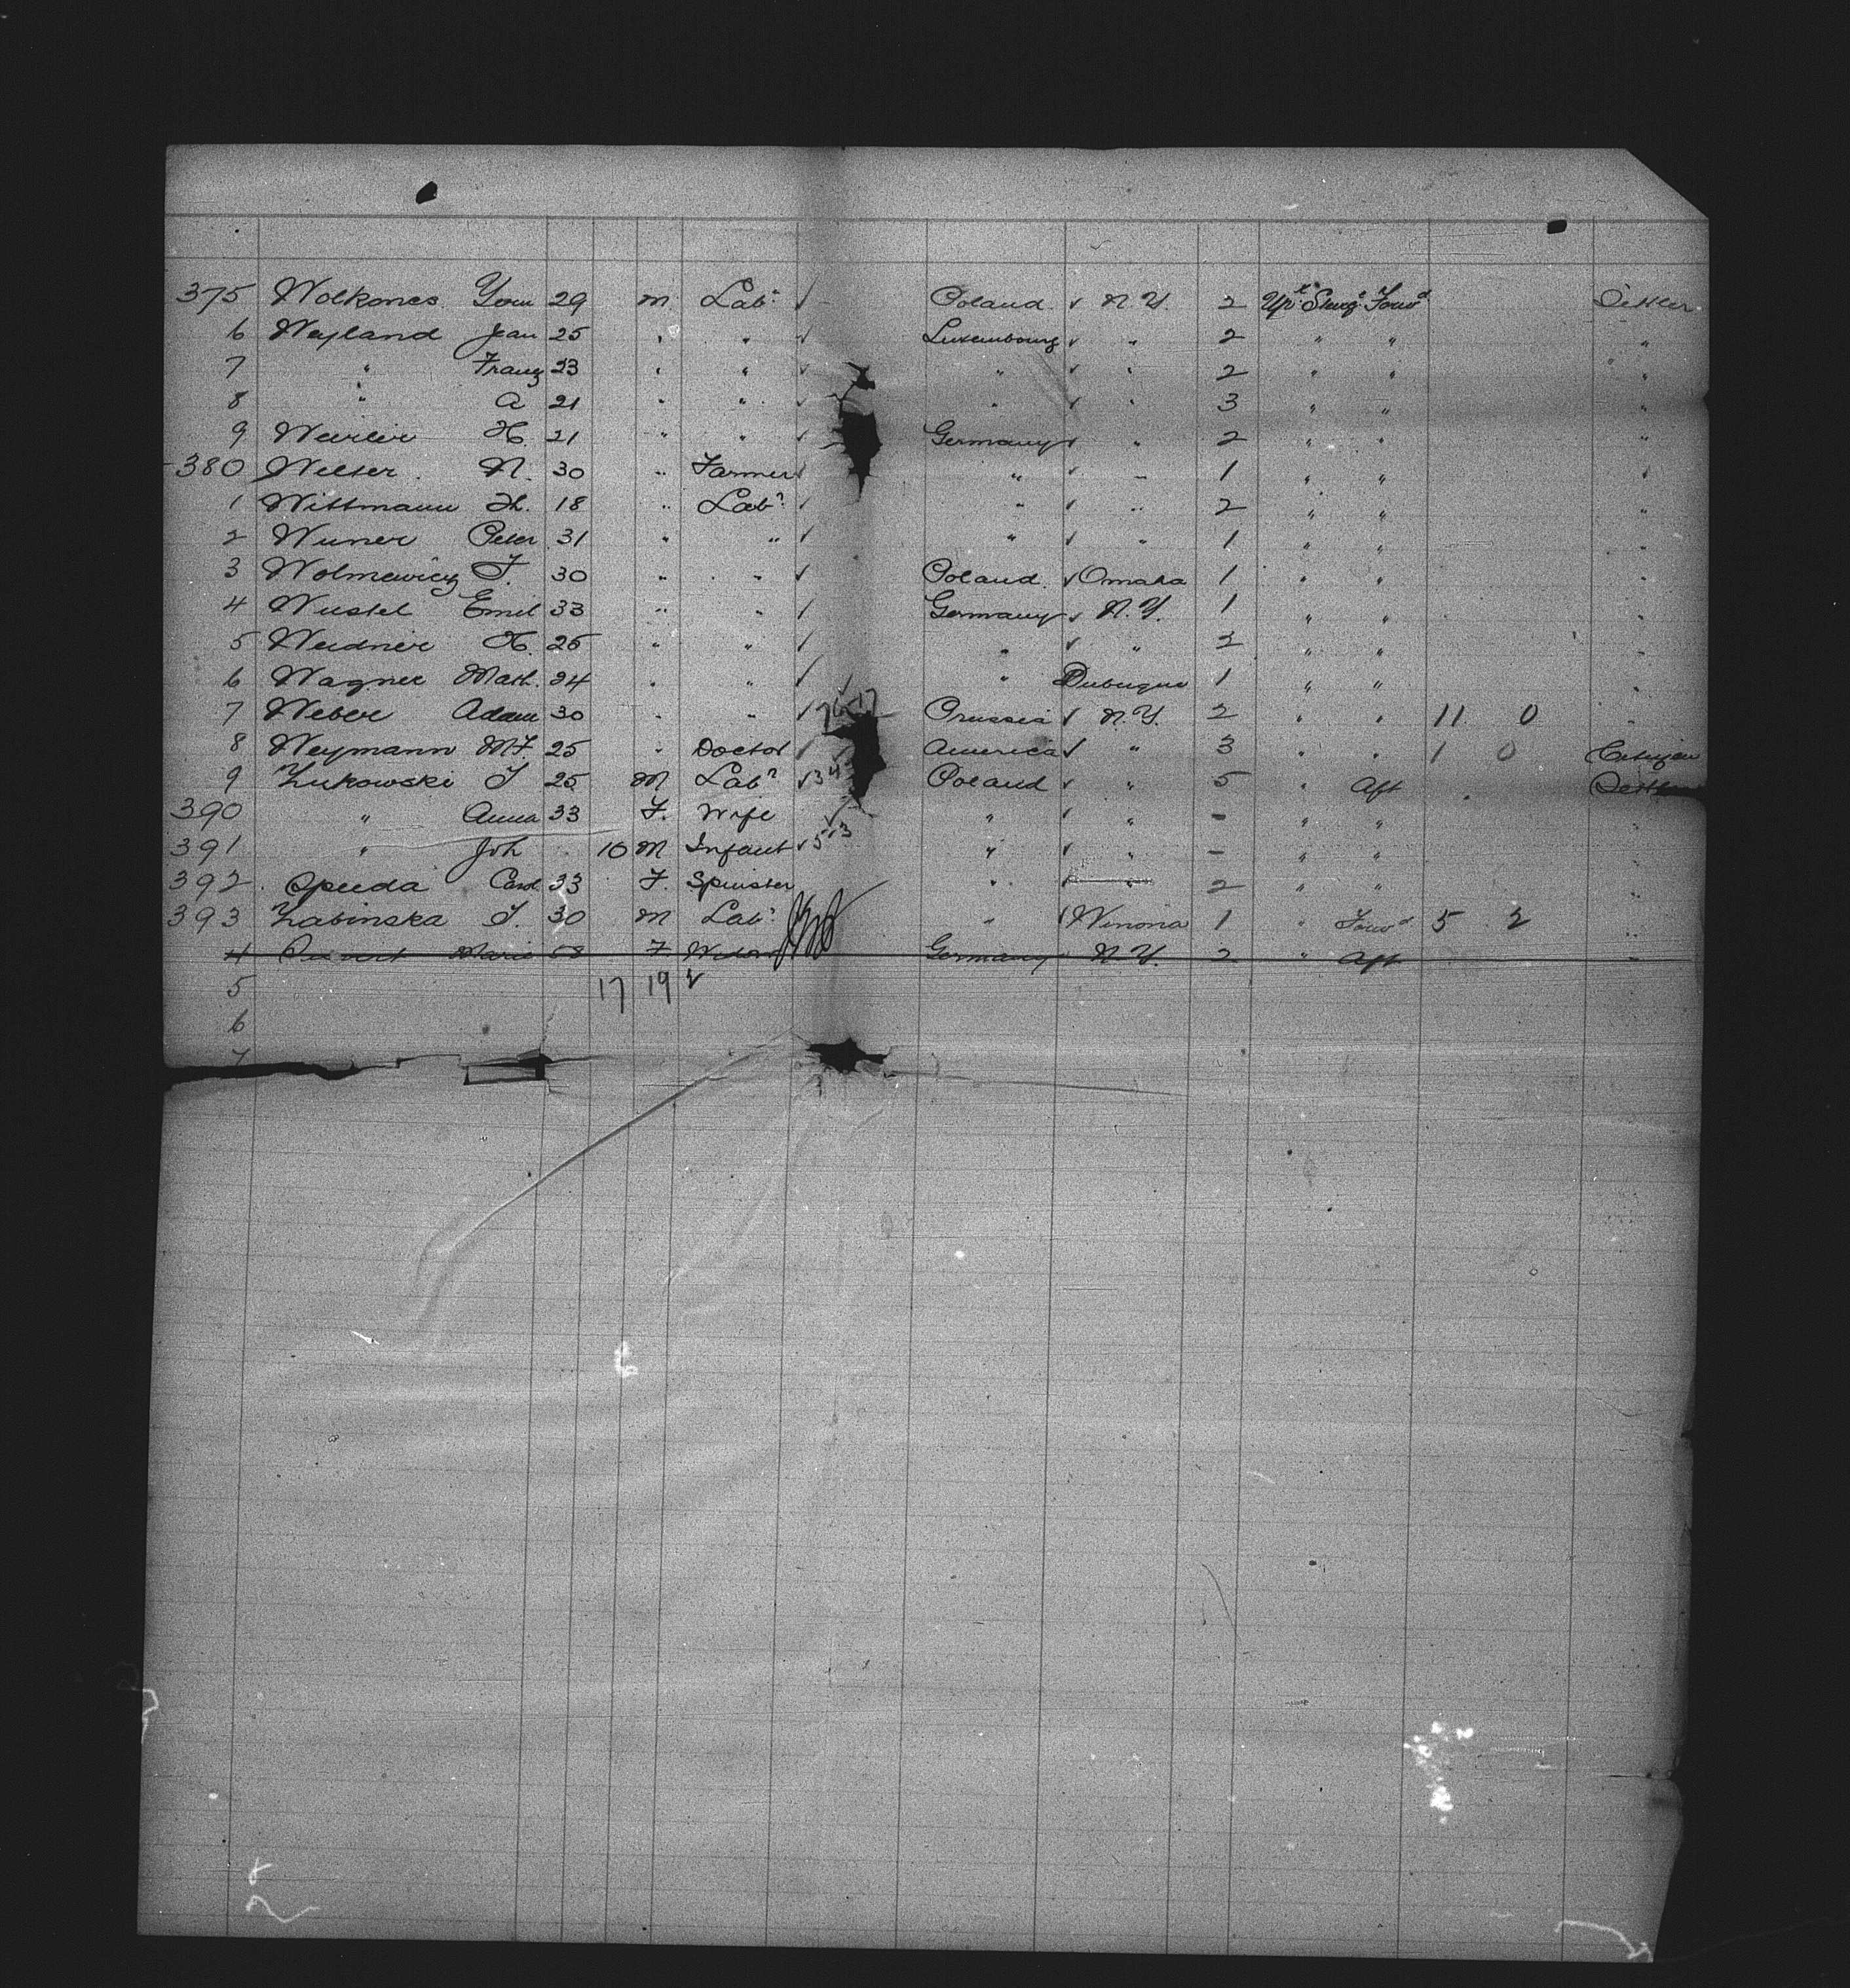 375 Wolkones Yom 29 m Labr ✓ Poland ✓ N.Y. 2 Upr Sterg Forwd Settler
6 Weyland Jean 25 " " ✓ Luxembourg ✓ " 2 " " "
7 " Franz 23 " " ✓ " ✓ " 2 " " "
8 " A 21 " " ✓ " ✓ " 3 " " "
9 H. 21 " " ✓ Germany ✓ " 2 " " "
380 Welter N. 30 " Farmer ✓ " ✓ " 1 " " "
1 Wittmann Th. 18 " Labr ✓ " ✓ " 2 " " "
2 Wuner Peter 31 " " ✓ " ✓ " 1 " " "
3 Wolmewicz F. 30 " " ✓ Poland ✓ Omaha 1 " " "
4 Wustel Emil 33 " " ✓ Germany ✓ N.Y. 1 " " "
5 Weidner H. 25 " " ✓ " ✓ " 2 " " "
6 Wagner Math. 24 " " ✓ " Dubuque 1 " " "
7 Weber Adam 30 " " ✓ Prussia ✓ N.Y. 2 " " 11 0 "
8 Weymann M.F. 25 " Doctor ✓ America ✓ " 3 " " 1 0 Citizen
9 Zukowski J 25 M Labr ✓ 34 Poland ✓ " 5 " Aft Settler
390 " Anna 33 F. Wife ✓ " ✓ " - " " "
391 " Joh 10 M Infant ✓ 513 " ✓ " - " " "
392 Opuda Carol 33 F. Spinster " ✓ " 2 " " "
393 Zabinska J. 30 M Labr " ✓ Winona 1 " Forwd 5 2 "
4 Marie 58 F Widow Germany N.Y. 2 " Aft "
5 17 19 2
6
7